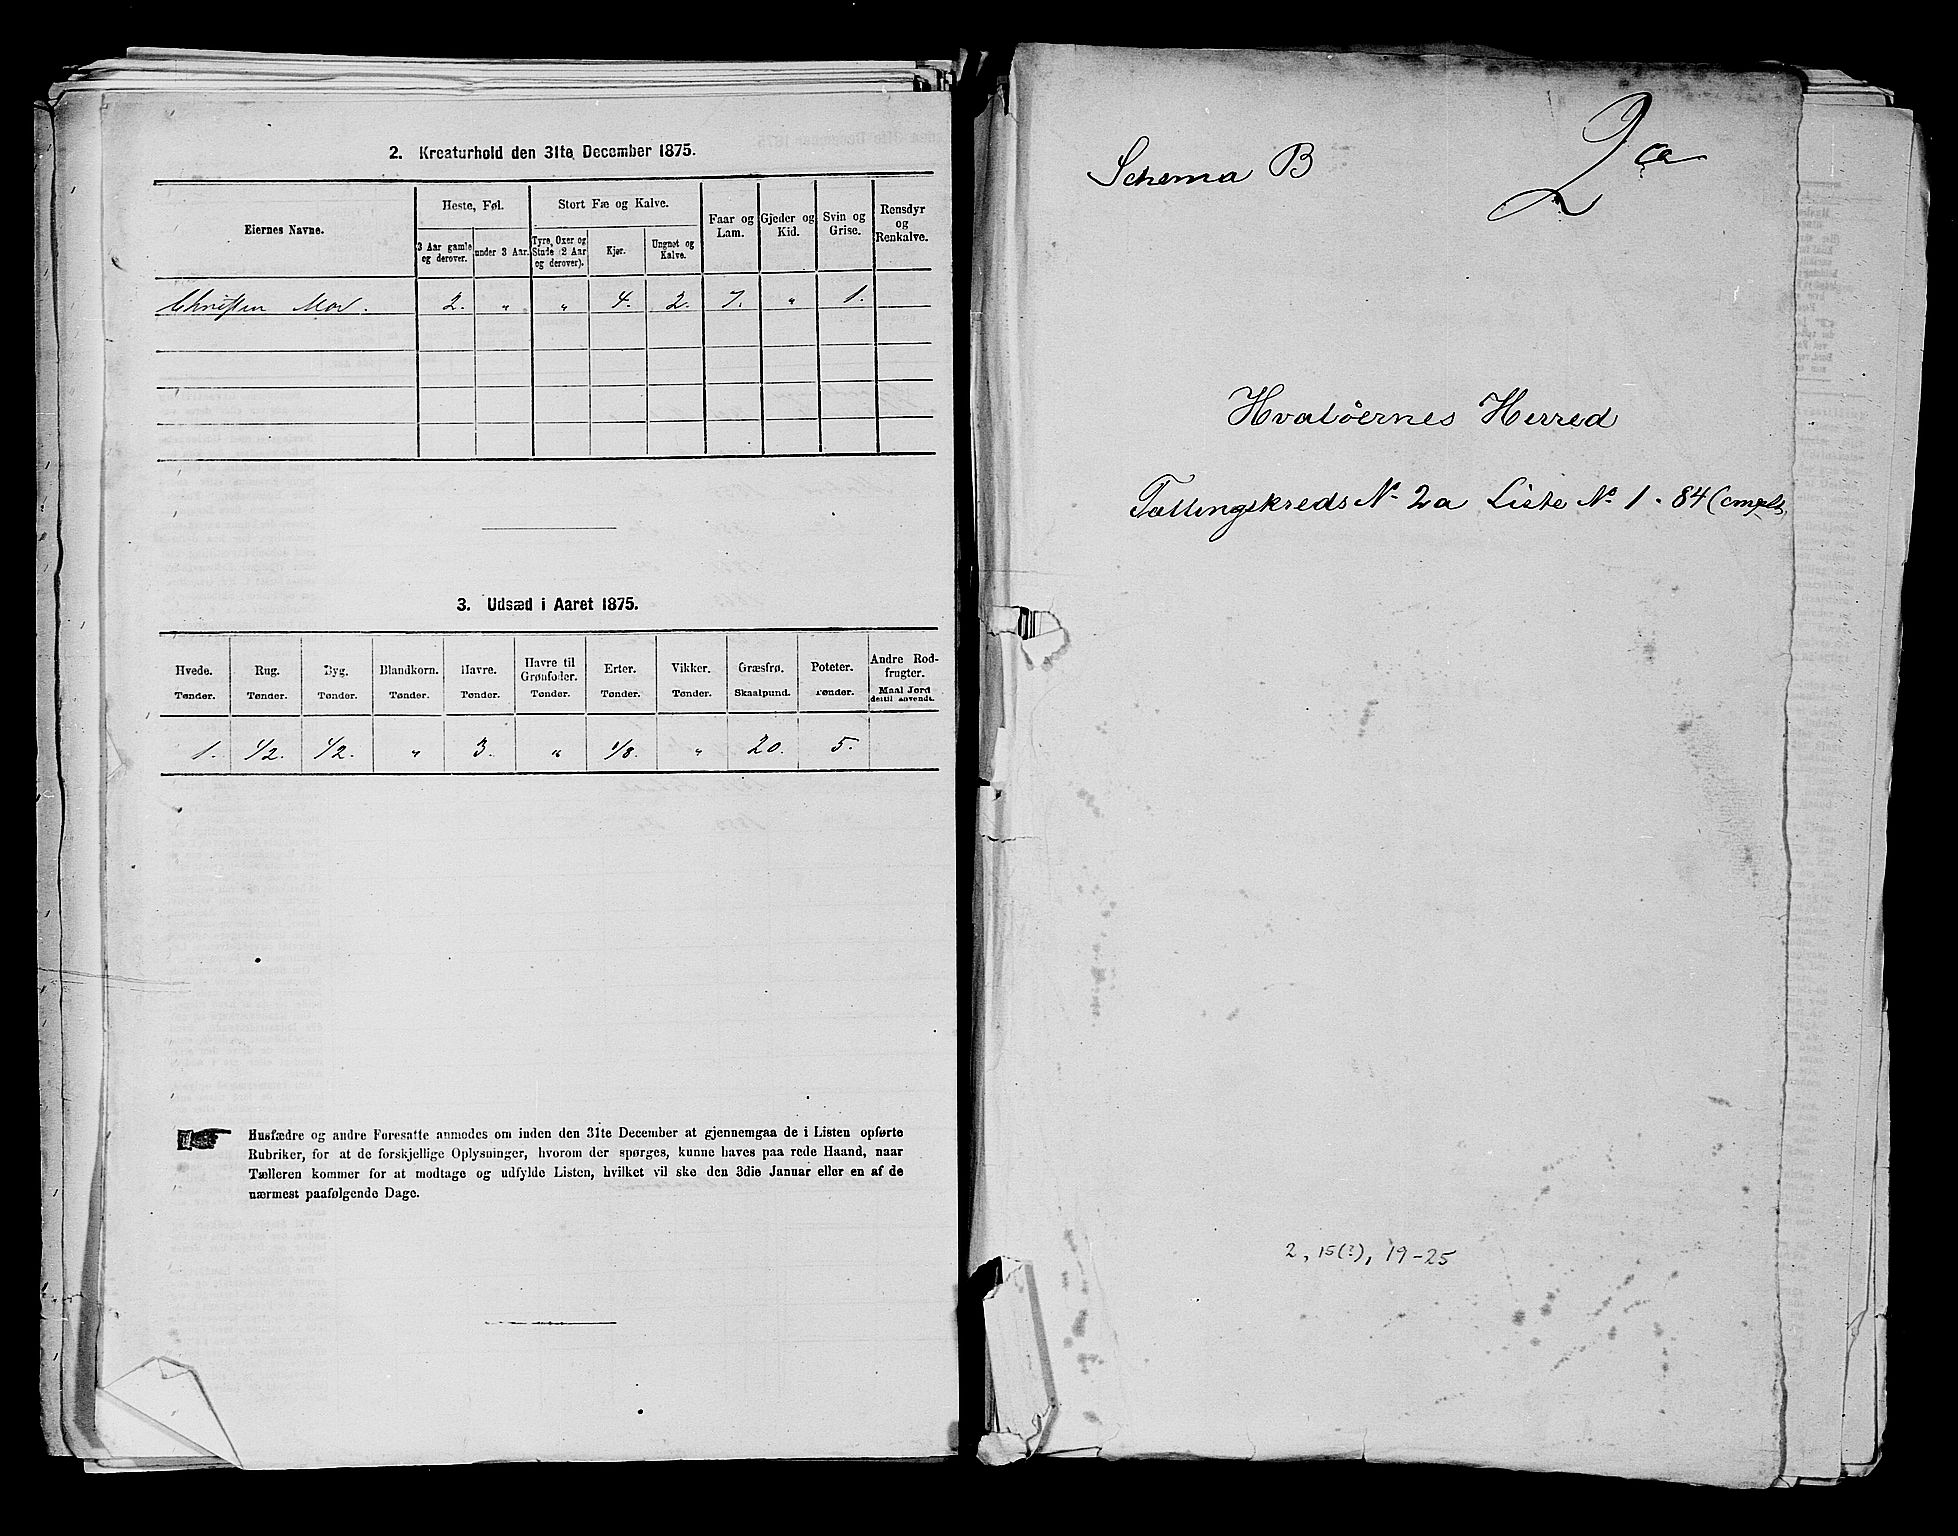 2. Kreaturhold den 31te December 1875.
Eiernes Navne.
Heste, Føl.
3 Aar gamle og derover.
under 3 Aar.
Stort Fæ og Kalve.
Tyre, Oxer og Stude (2 Aar og derover).
Kjør.
Ungnøt og Kalve.
Faar og Lam.
Gjeder og Kid.
Svin og Grise.
Rensdyr og Renkalve.
Christen 2. " " 4. 2. 7. " 1.
3. Udsæd i Aaret 1875.
Hvede. Rug. Byg. Blandkorn. Havre. Havre til Grønfoder. Erter. Vikker. Græsfrø. Poteter. Andre Rodfrugter.
Tønder. Tønder. Tønder. Tønder. Tønder. Tønder. Tønder. Tønder. Skaalpund. Tønder. Maal Jord dertil anvendt.
1. 1/2. 1/2. " 3. " 1/8. " 20. 5.
Husfædre og andre Foresatte anmodes om inden den 31te December at gjennemgaa de i Listen opførte
Rubriker, for at de forskjellige Oplysninger, hvorom der spørges, kunne haves paa rede Haand, naar
Tælleren kommer for at modtage og udfylde Listen, hvilket vil ske den 3die Januar eller en af de
nærmest paafølgende Dage.
Schema B
2a
Hvaløernes Herred
Tællingskreds No 2a Liste No 1 - 84 (complt
2, 15(?), 19-25